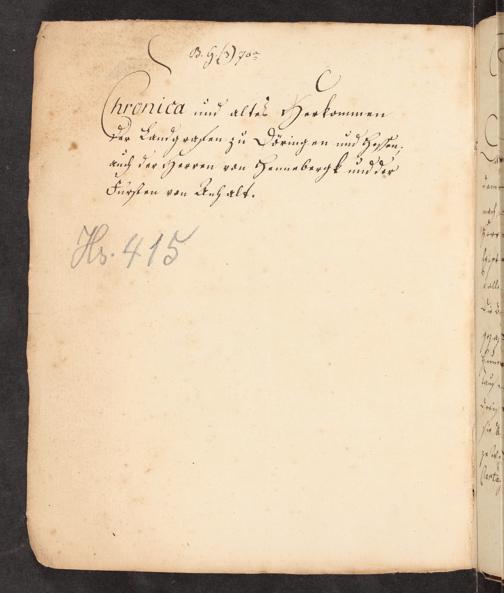 B. G. (3) 70a
Chronica und altes Herkommen
der Landgrafen zu Döringen und Hessen,
auch der Herren von Hennebergk und der
Fürsten von Anhalt.
Hs. 415